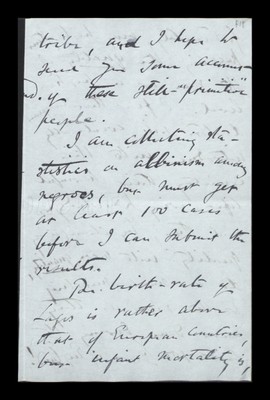 tribe, and I hope to
send you some account
of these still "primitive"
people.
I am collecting sta-
tistics on albinism among
negroes, but must get
at least 100 cases
before I can submit the
results.
The birth-rate of
Lagos is rather above
that of European countries,
but infant mortality is,